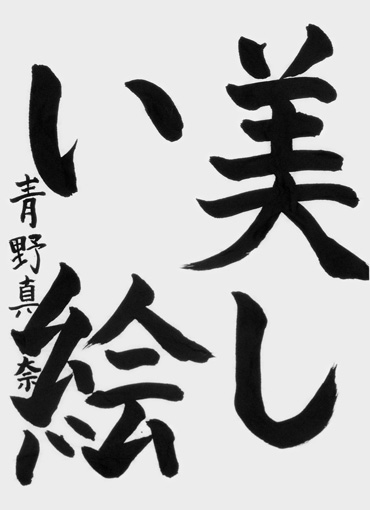 美し
い絵
青野真奈